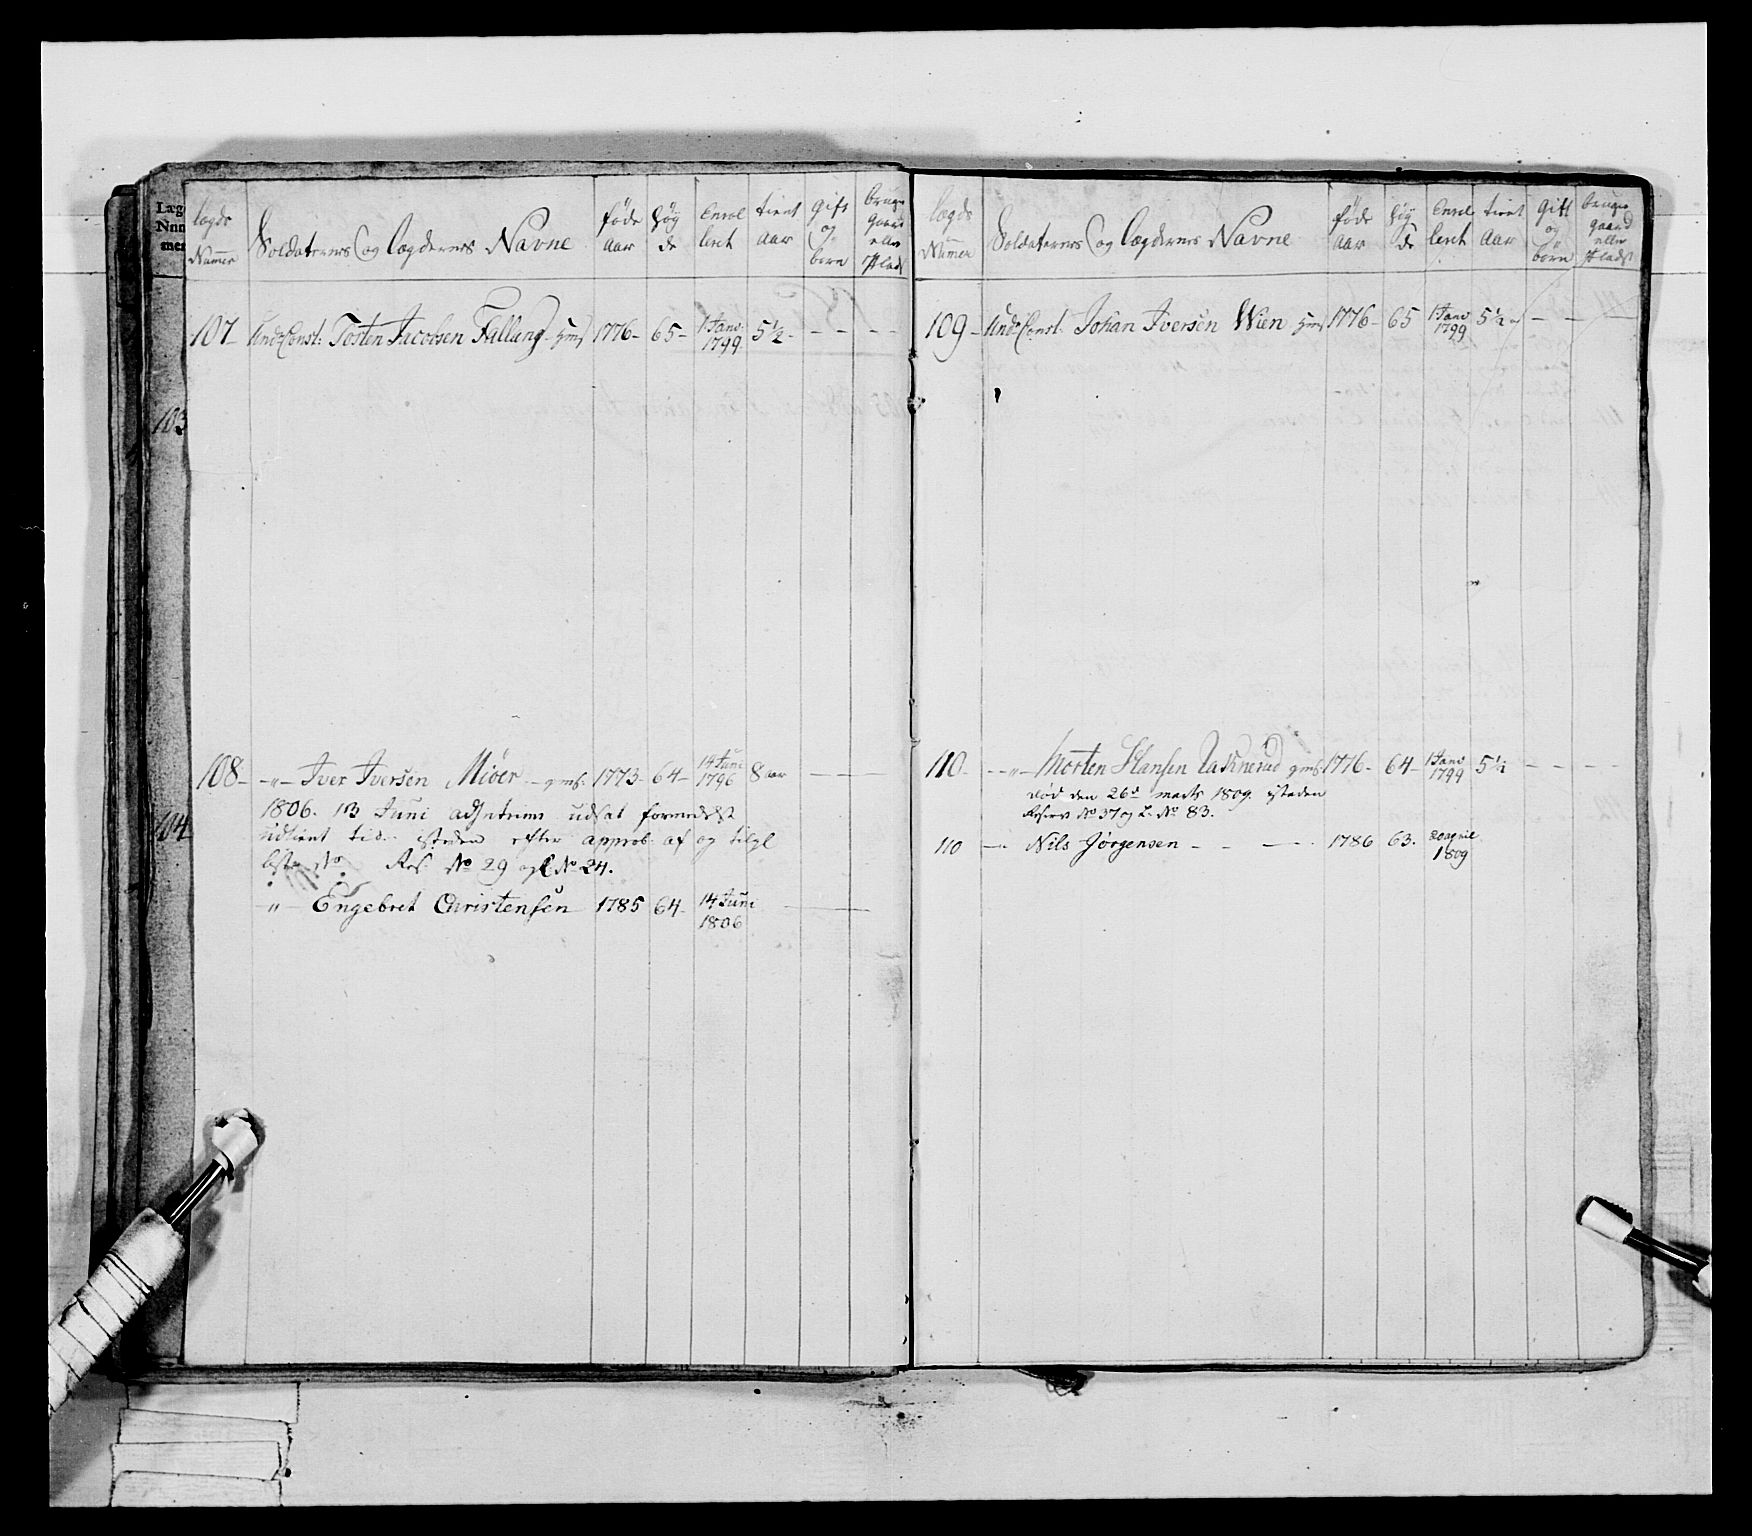 Læg
Num
mer
103
104
lægds Numer | Soldaternes og lægdernes Navne | føde aar | høy de | Enrol leret | tient aar | gift og børn | bruger gaard eller Plads
107 - Und: Const: Tosten Jacobsen 1776 - 65 - 1 Janv: 1799 5½ - - - -
108 - -"- Iver Iversen Miøer - gms: 1773 - 64 - 14 Juni 1796 8 aar - -
1806. 13 Juni udsat formedelst
udtient tid. isteden efter approb. af og
No Res. No 29 og L No 24.
" - Engebret Christensen 1785 64 - 14 Juni 1806 - -
lægds Numer | Soldaternes og lægdernes Navne | føde aar | høy de | Enrol leret | tient aar | gift og børn | bruger gaard eller Plads
109 - Und: Const: Johan Iversen Wien 1776 - 65 1 Janv 1799 5½ - - -
110 - - "- Morten Hansen gms: 1776 - 64 - 1 Janv 1799 5½ - - -
død den 26d marts 1809. isteden
Reserv No 37 og L. No 83.
110 - Nils Jørgensen - - - 1786 63. 20 april 1809